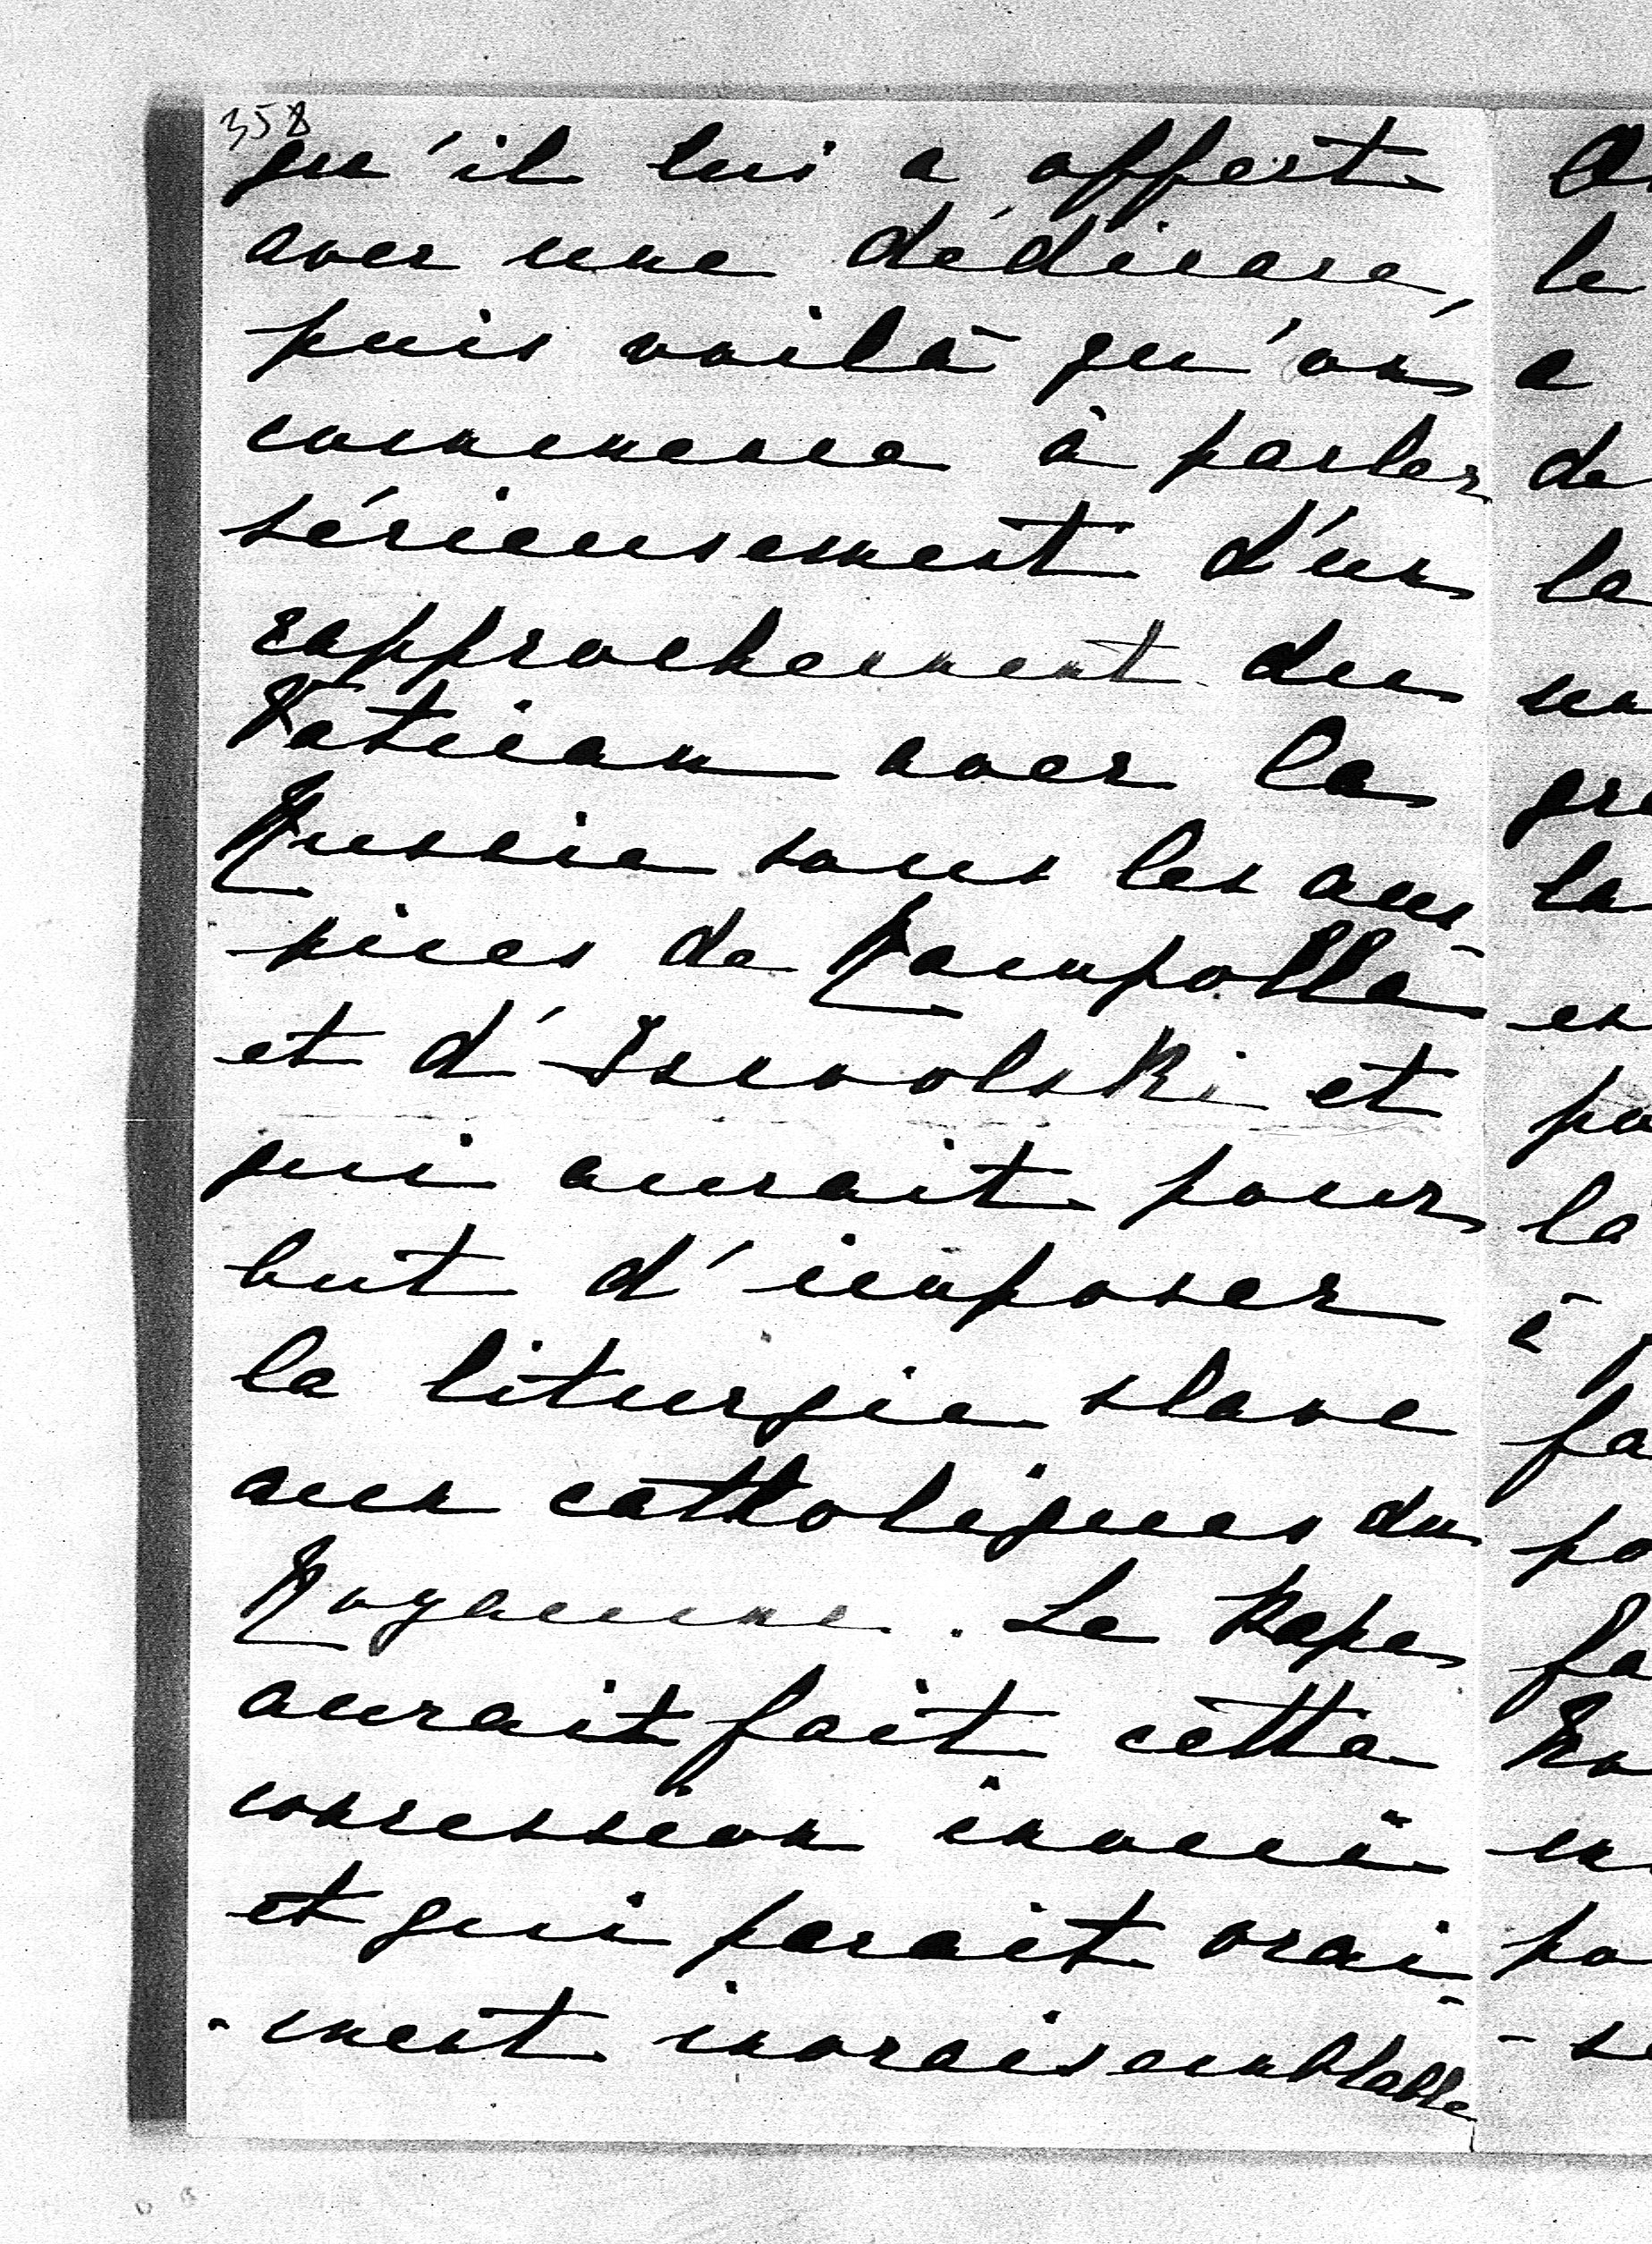 358
qu'il lui a offert
avec une dédicace,
puis voilà qu'on
commence à parler
sérieusement d'un
rapprochement du
Vatican avec la
Russie sous les aus-
pices de Rampolla
et d'Iswolski et
qui aurait pour
but d'imposer
la liturgie slave
aux catholiques du
Royaume. Le Pape
aurait fait cette
concession inouïe
et qui parait vrai-
-ment invraisemblable